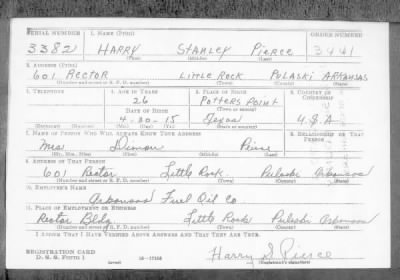 SERIAL NUMBER 1. NAME (Print) ORDER NUMBER
3382 HARRY STANLEY PIERCE 3441
(First) (Middle) (Last)
2. ADDRESS (Print)
601 RECTOR LITTLE ROCK PULASKI ARKANSAS
(Number and street or R. F. D. number) (Town) (County) (State)
3. TELEPHONE 4. AGE IN YEARS 5. PLACE OF BIRTH 6. COUNTRY OF CITIZENSHIP
26 POTTERS POINT
DATE OF BIRTH (Town or county)
4-20-15 Texas U.S.A.
(Exchange) (Number) (Mo.) (Day) (Yr.) (State or country)
7. NAME OF PERSON WHO WILL ALWAYS KNOW YOUR ADDRESS 8. RELATIONSHIP OF THAT PERSON
Mrs Pierce
(Mr., Mrs., Miss) (First) (Middle) (Last)
9. ADDRESS OF THAT PERSON
601 Rector Little Rock Pulaski Arkansas
(Number and street or R. F. D. number) (Town) (County) (State)
10. EMPLOYER'S NAME
Fuel Oil Co
11. PLACE OF EMPLOYMENT OR BUSINESS
Rector Bldg Little Rock Pulaski Arkansas
(Number and street or R. F. D. number) (Town) (County) (State)
I AFFIRM THAT I HAVE VERIFIED ABOVE ANSWERS AND THAT THEY ARE TRUE.
REGISTRATION CARD
D. S. S. FORM 1 Harry S Pierce
(Registrant's signature)